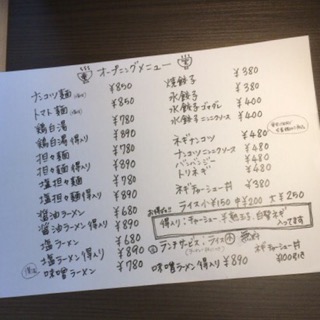 オープニングメニュー
ナンコツ麺 ¥850
トマト麺 ¥850
鶏白湯 ¥780
鶏白湯得入り ¥890
担々麺 ¥780
担々麺得入り ¥890
塩担々麺 ¥780
塩担々麺得入り ¥890
醤油ラーメン ¥680
醤油ラーメン得入り ¥890
塩ラーメン ¥680
塩ラーメン得入り ¥890
味噌ラーメン ¥780
味噌ラーメン得入り ¥890
焼餃子 ¥380
水餃子 ¥380
水餃子ゴマダレ ¥400
水餃子ニンニクソース ¥400
ネギナンコツ ¥480
ナンコツニンニクソース ¥480
バンバンジー ¥480
トリネギ ¥480
ネギチャーシュー丼 ¥380
ライス 小¥150 中¥200 大¥250
得入り:チャーシュー、味玉子、白髪ネギ
入ってます
ランチサービス:ライス小 無料
ネギチャーシュー丼